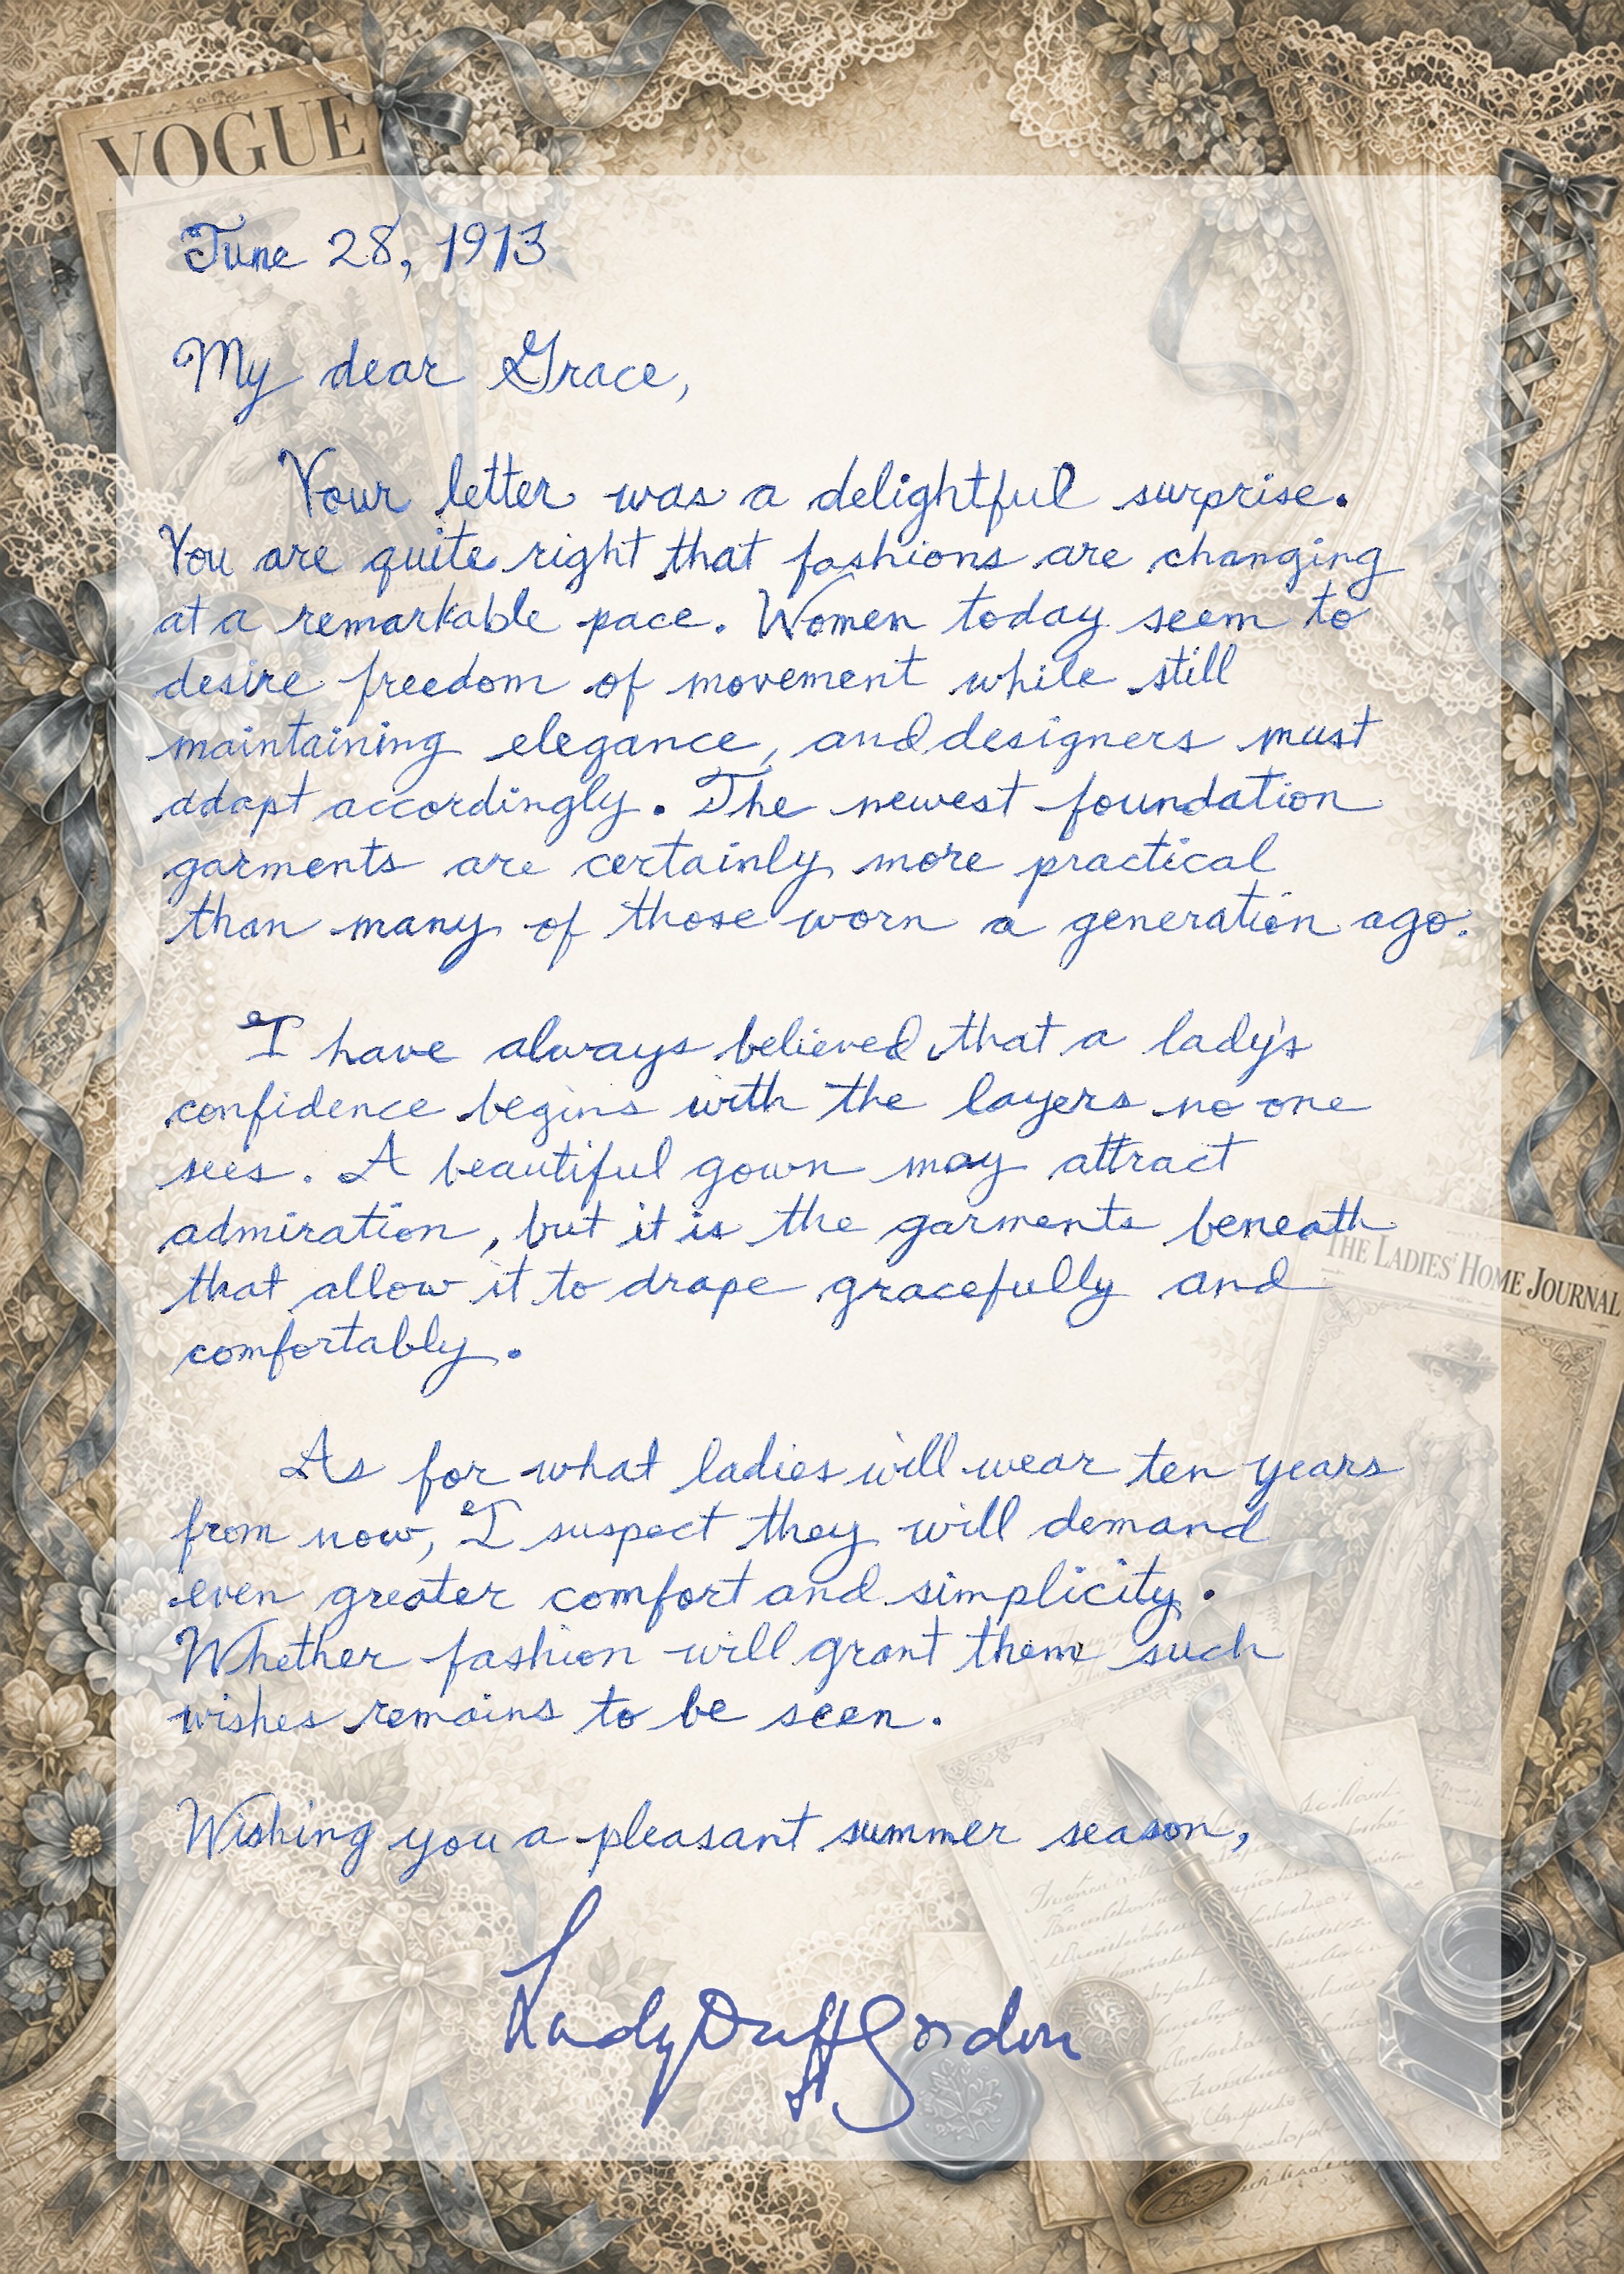 VOGUE
June 28, 1913
My dear Grace,
Your letter was a delightful surprise.
You are quite right that fashions are changing
at a remarkable pace. Women today seem to
desire freedom of movement while still
maintaining elegance, and designers must
adapt accordingly. The newest foundation
garments are certainly more practical
than many of those worn a generation ago.
I have always believed that a lady's
confidence begins with the layers no one
sees. A beautiful gown may attract
admiration, but it is the garments beneath
that allow it to drape gracefully and
comfortably.
THE LADIES' HOME JOURNAL
As for what ladies will wear ten years
from now, I suspect they will demand
even greater comfort and simplicity.
Whether fashion will grant them such
wishes remains to be seen.
Wishing you a pleasant summer season,
Lady Duff Gordon